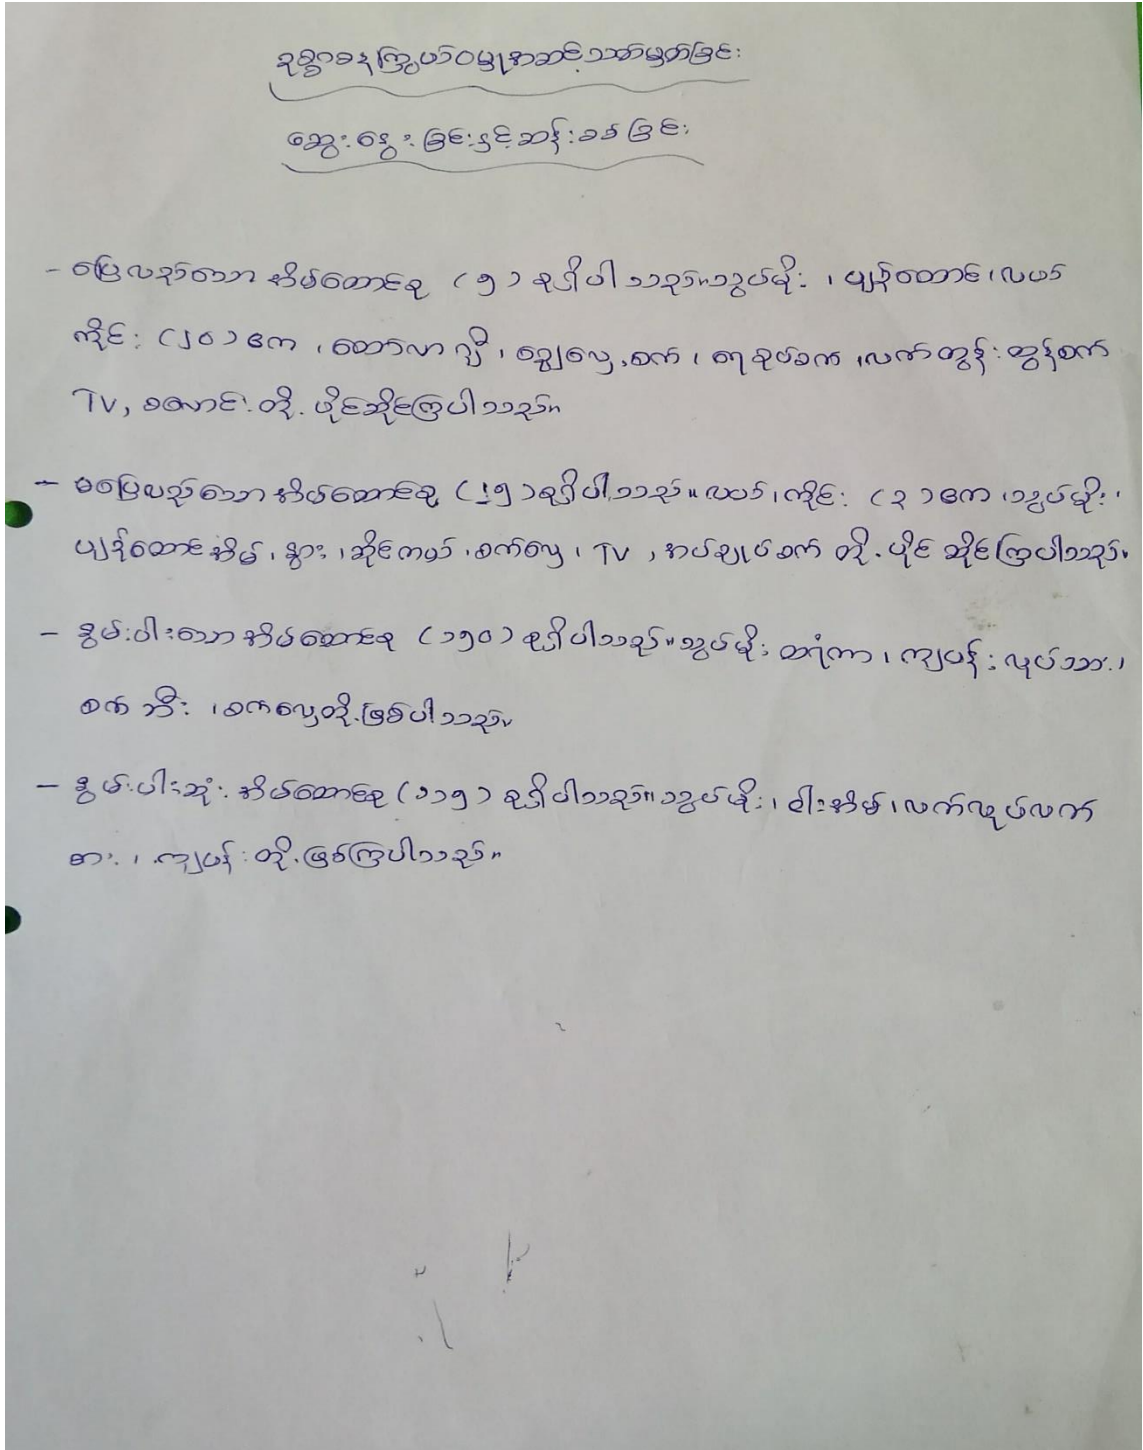 ဥစ္စာဓနကြွယ်ဝမှုအဆင့်သတ်မှတ်ခြင်း
ဆွေးနွေးခြင်းနှင့်ဆန်းစစ်ခြင်း
- ပြေလည်သော အိမ်ထောင်စု (၅) စုရှိပါသည်။သွပ်မိုး၊ ပျဉ်ထောင်၊လယ်
ကိုင်း (၂၀)ဧက၊ ထော်လာဂျီ၊ ရွှေလှေ့စက်၊ ရေစုပ်စက်၊လက်တွန်းထွန်စက်
TV, စလောင်းတို့ ပိုင်ဆိုင်ကြပါသည်။
- မပြေလည်သော အိမ်ထောင်စု (၂၅)စုရှိပါသည်။ လယ်၊ကိုင်း (၃)ဧက၊သွပ်မိုး၊
ပျဉ်ထောင်အိမ်၊ နွား၊ဆိုင်ကယ်၊စက်လှေ၊ TV, အပ်ချုပ်စက် တို့ ပိုင်ဆိုင်ကြပါသည်။
- နွမ်းပါးသောအိမ်ထောင်စု (၁၅၀)စုရှိပါသည်။သွပ်မိုး ထရံကာ၊ ကျပန်းလုပ်သား၊
စက်ဘီး၊စက်လှေတို့ဖြစ်ပါသည်။
- နွမ်းပါးဆုံးအိမ်ထောင်စု(၁၁၅) စုရှိပါသည်။သွပ်မိုး၊ ဝါးအိမ်၊လက်လုပ်လက်
စား၊ ကျပန်းတို့ဖြစ်ကြပါသည်။